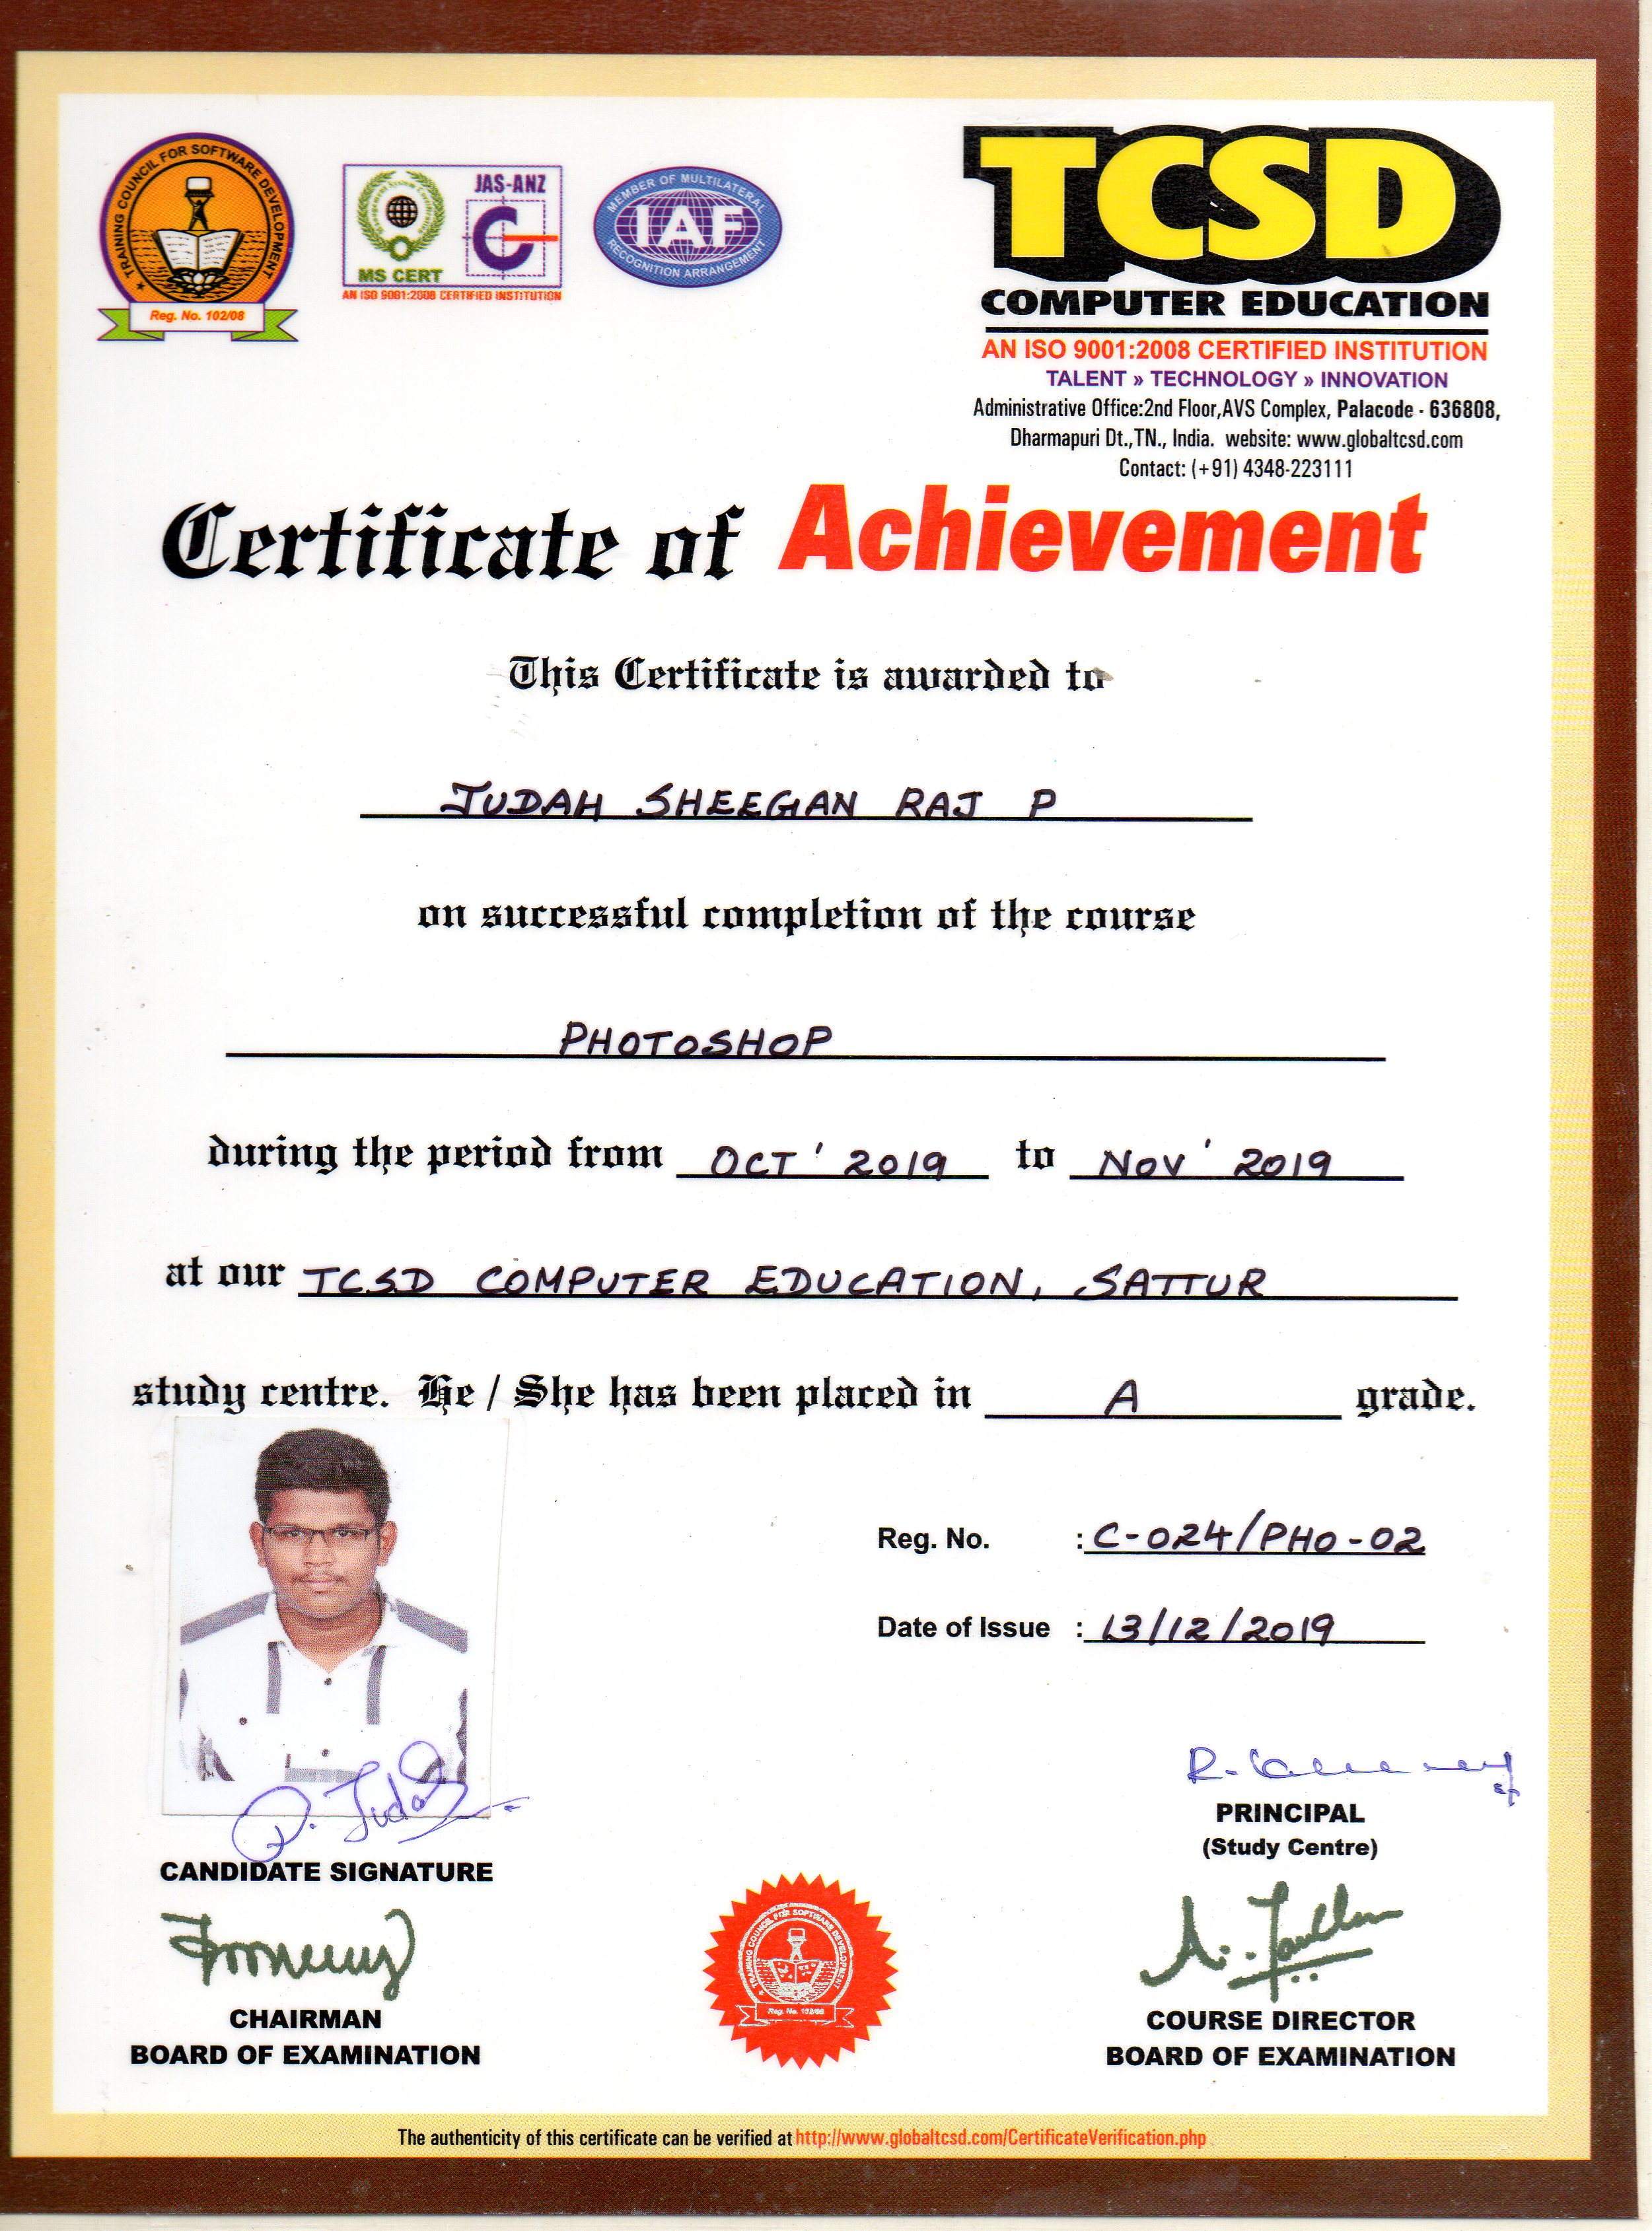 TRAINING COUNCIL FOR SOFTWARE DEVELOPMENT
Reg. No. 102/08
MS CERT
JAS-ANZ
AN ISO 9001:2008 CERTIFIED INSTITUTION
MEMBER OF MULTILATERAL
IAF
RECOGNITION ARRANGEMENT
TCSD
COMPUTER EDUCATION
AN ISO 9001:2008 CERTIFIED INSTITUTION
TALENT » TECHNOLOGY » INNOVATION
Administrative Office:2nd Floor,AVS Complex, Palacode - 636808,
Dharmapuri Dt.,TN., India. website: www.globaltcsd.com
Contact: (+91) 4348-223111
Certificate of Achievement
This Certificate is awarded to
JUDAH SHEEGAN RAJ P
on successful completion of the course
PHOTOSHOP
during the period from OCT ' 2019 to NOV ' 2019
at our TCSD COMPUTER EDUCATION, SATTUR
study centre. He / She has been placed in A grade.
Reg. No. : C-024/PHO-02
Date of Issue : 13/12/2019
P. Judah
CANDIDATE SIGNATURE
PRINCIPAL
(Study Centre)
CHAIRMAN
BOARD OF EXAMINATION
TRAINING COUNCIL FOR SOFTWARE DEVELOPMENT
Reg. No. 102/08
COURSE DIRECTOR
BOARD OF EXAMINATION
The authenticity of this certificate can be verified at http://www.globaltcsd.com/CertificateVerification.php